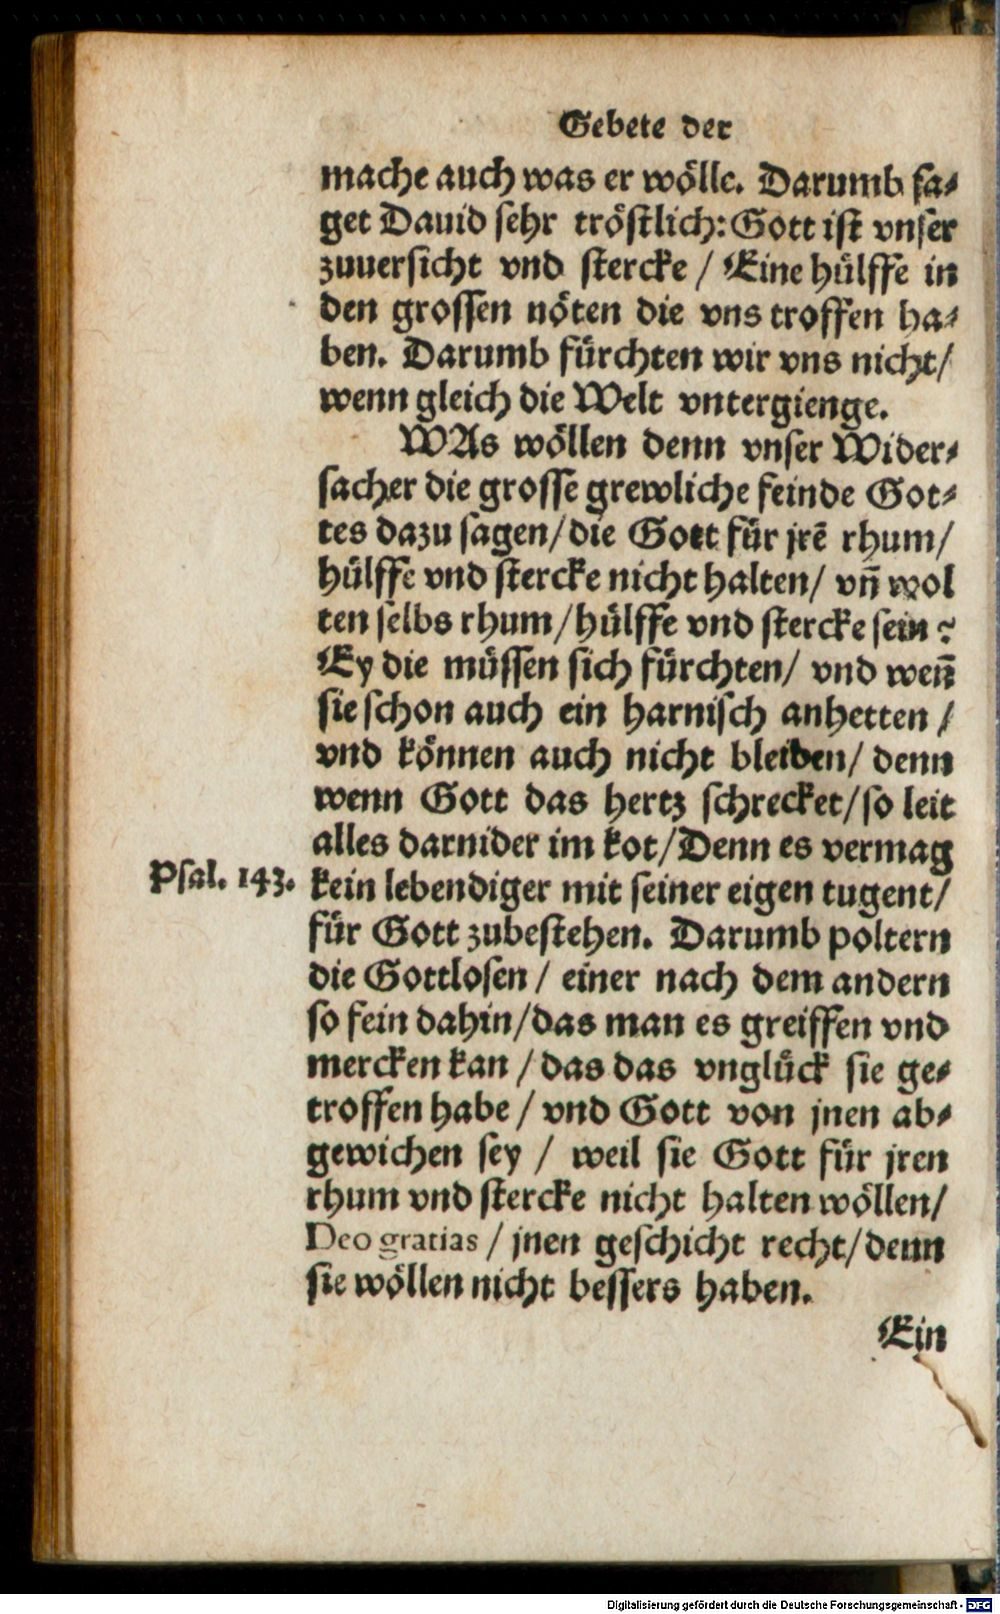 Gebete der
mache auch was er wölle. Darumb sa-
get Dauid sehr tröstlich: Gott ist vnser
zuuersicht vnd stercke / Eine hülffe in
den grossen nöten die vns troffen ha-
ben. Darumb fürchten wir vns nicht/
wenn gleich die Welt vntergienge.
WAs wöllen denn vnser Wider-
sacher die grosse grewliche feinde Got-
tes dazu sagen/die Gott für jrē rhum/
hülffe vnd stercke nicht halten/ vñ wol
ten selbs rhum/hülffe vnd stercke sein?
Ey die müssen sich fürchten/ vnd weñ
sie schon auch ein harnisch anhetten /
vnd können auch nicht bleiben/ denn
wenn Gott das hertz schrecket/so leit
alles darnider im kot/Denn es vermag
Psal. 143. kein lebendiger mit seiner eigen tugent/
für Gott zubestehen. Darumb poltern
die Gottlosen / einer nach dem andern
so fein dahin/das man es greiffen vnd
mercken kan / das das vnglück sie ge-
troffen habe / vnd Gott von jnen ab-
gewichen sey / weil sie Gott für jren
rhum vnd stercke nicht halten wöllen/
Deo gratias / jnen geschicht recht/denn
sie wöllen nicht bessers haben.
Ein
Digitalisierung gefördert durch die Deutsche Forschungsgemeinschaft - DFG